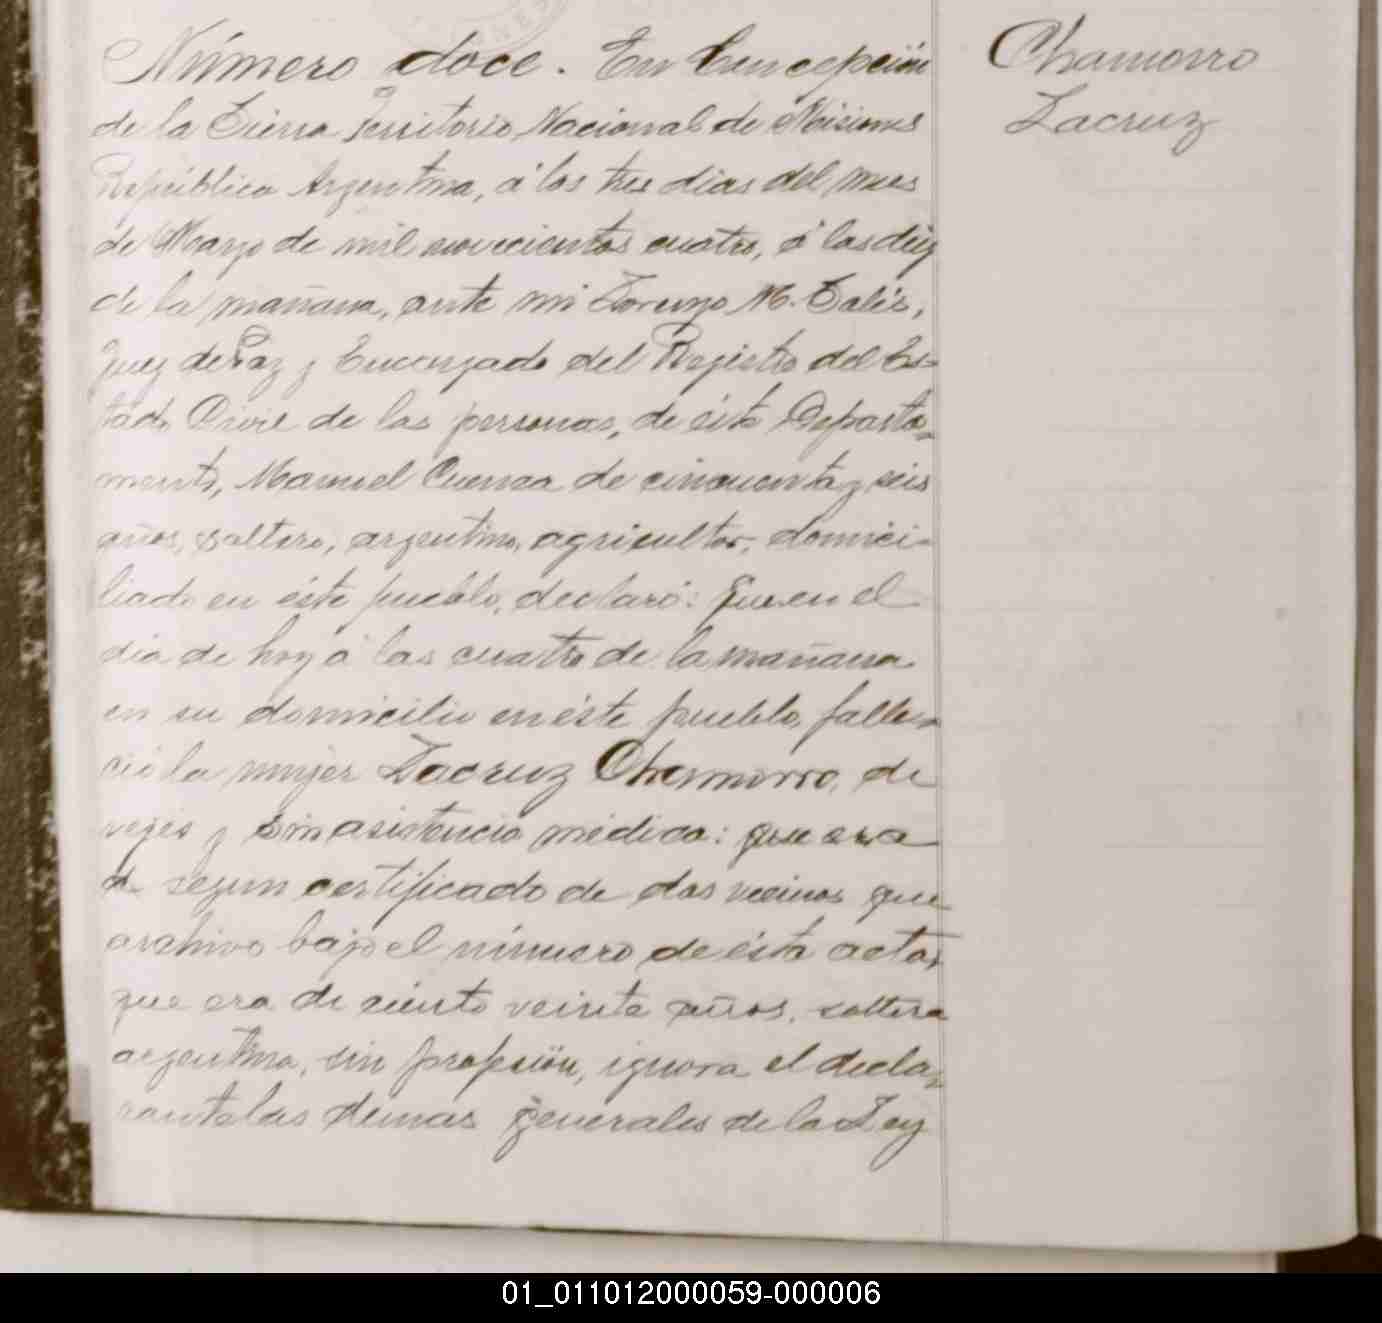 Número doce. En Concepción
de la Sierra Territorio Nacional de Misiones
República Argentina, á los tres dias del mes
de Marzo de mil novecientos cuatro, á las diez
de la mañana, ante mi Lorenzo M.
Juez de Paz y Encargado del Registro del Es-
tado Civil de las personas, de éste Departa-
mento, Manuel Cuenca de cincuenta y seis
años, soltero, argentino, agricultor, domici-
liado en éste pueblo, declaró: Que en el
dia de hoy á las cuatro de la mañana
en su domicilio en éste pueblo, falle-
ció la mujer Lacruz Chamorro, de
vejés y sin asistencia médica: que era
segun certificado de dos vecinos que
archivo bajo el número de ésta acta,
que era de ciento veinte años, soltera
argentina, sin profesión, ignora el decla-
rante las demas generales de la Ley
Chamorro
Lacruz
01_011012000059-000006